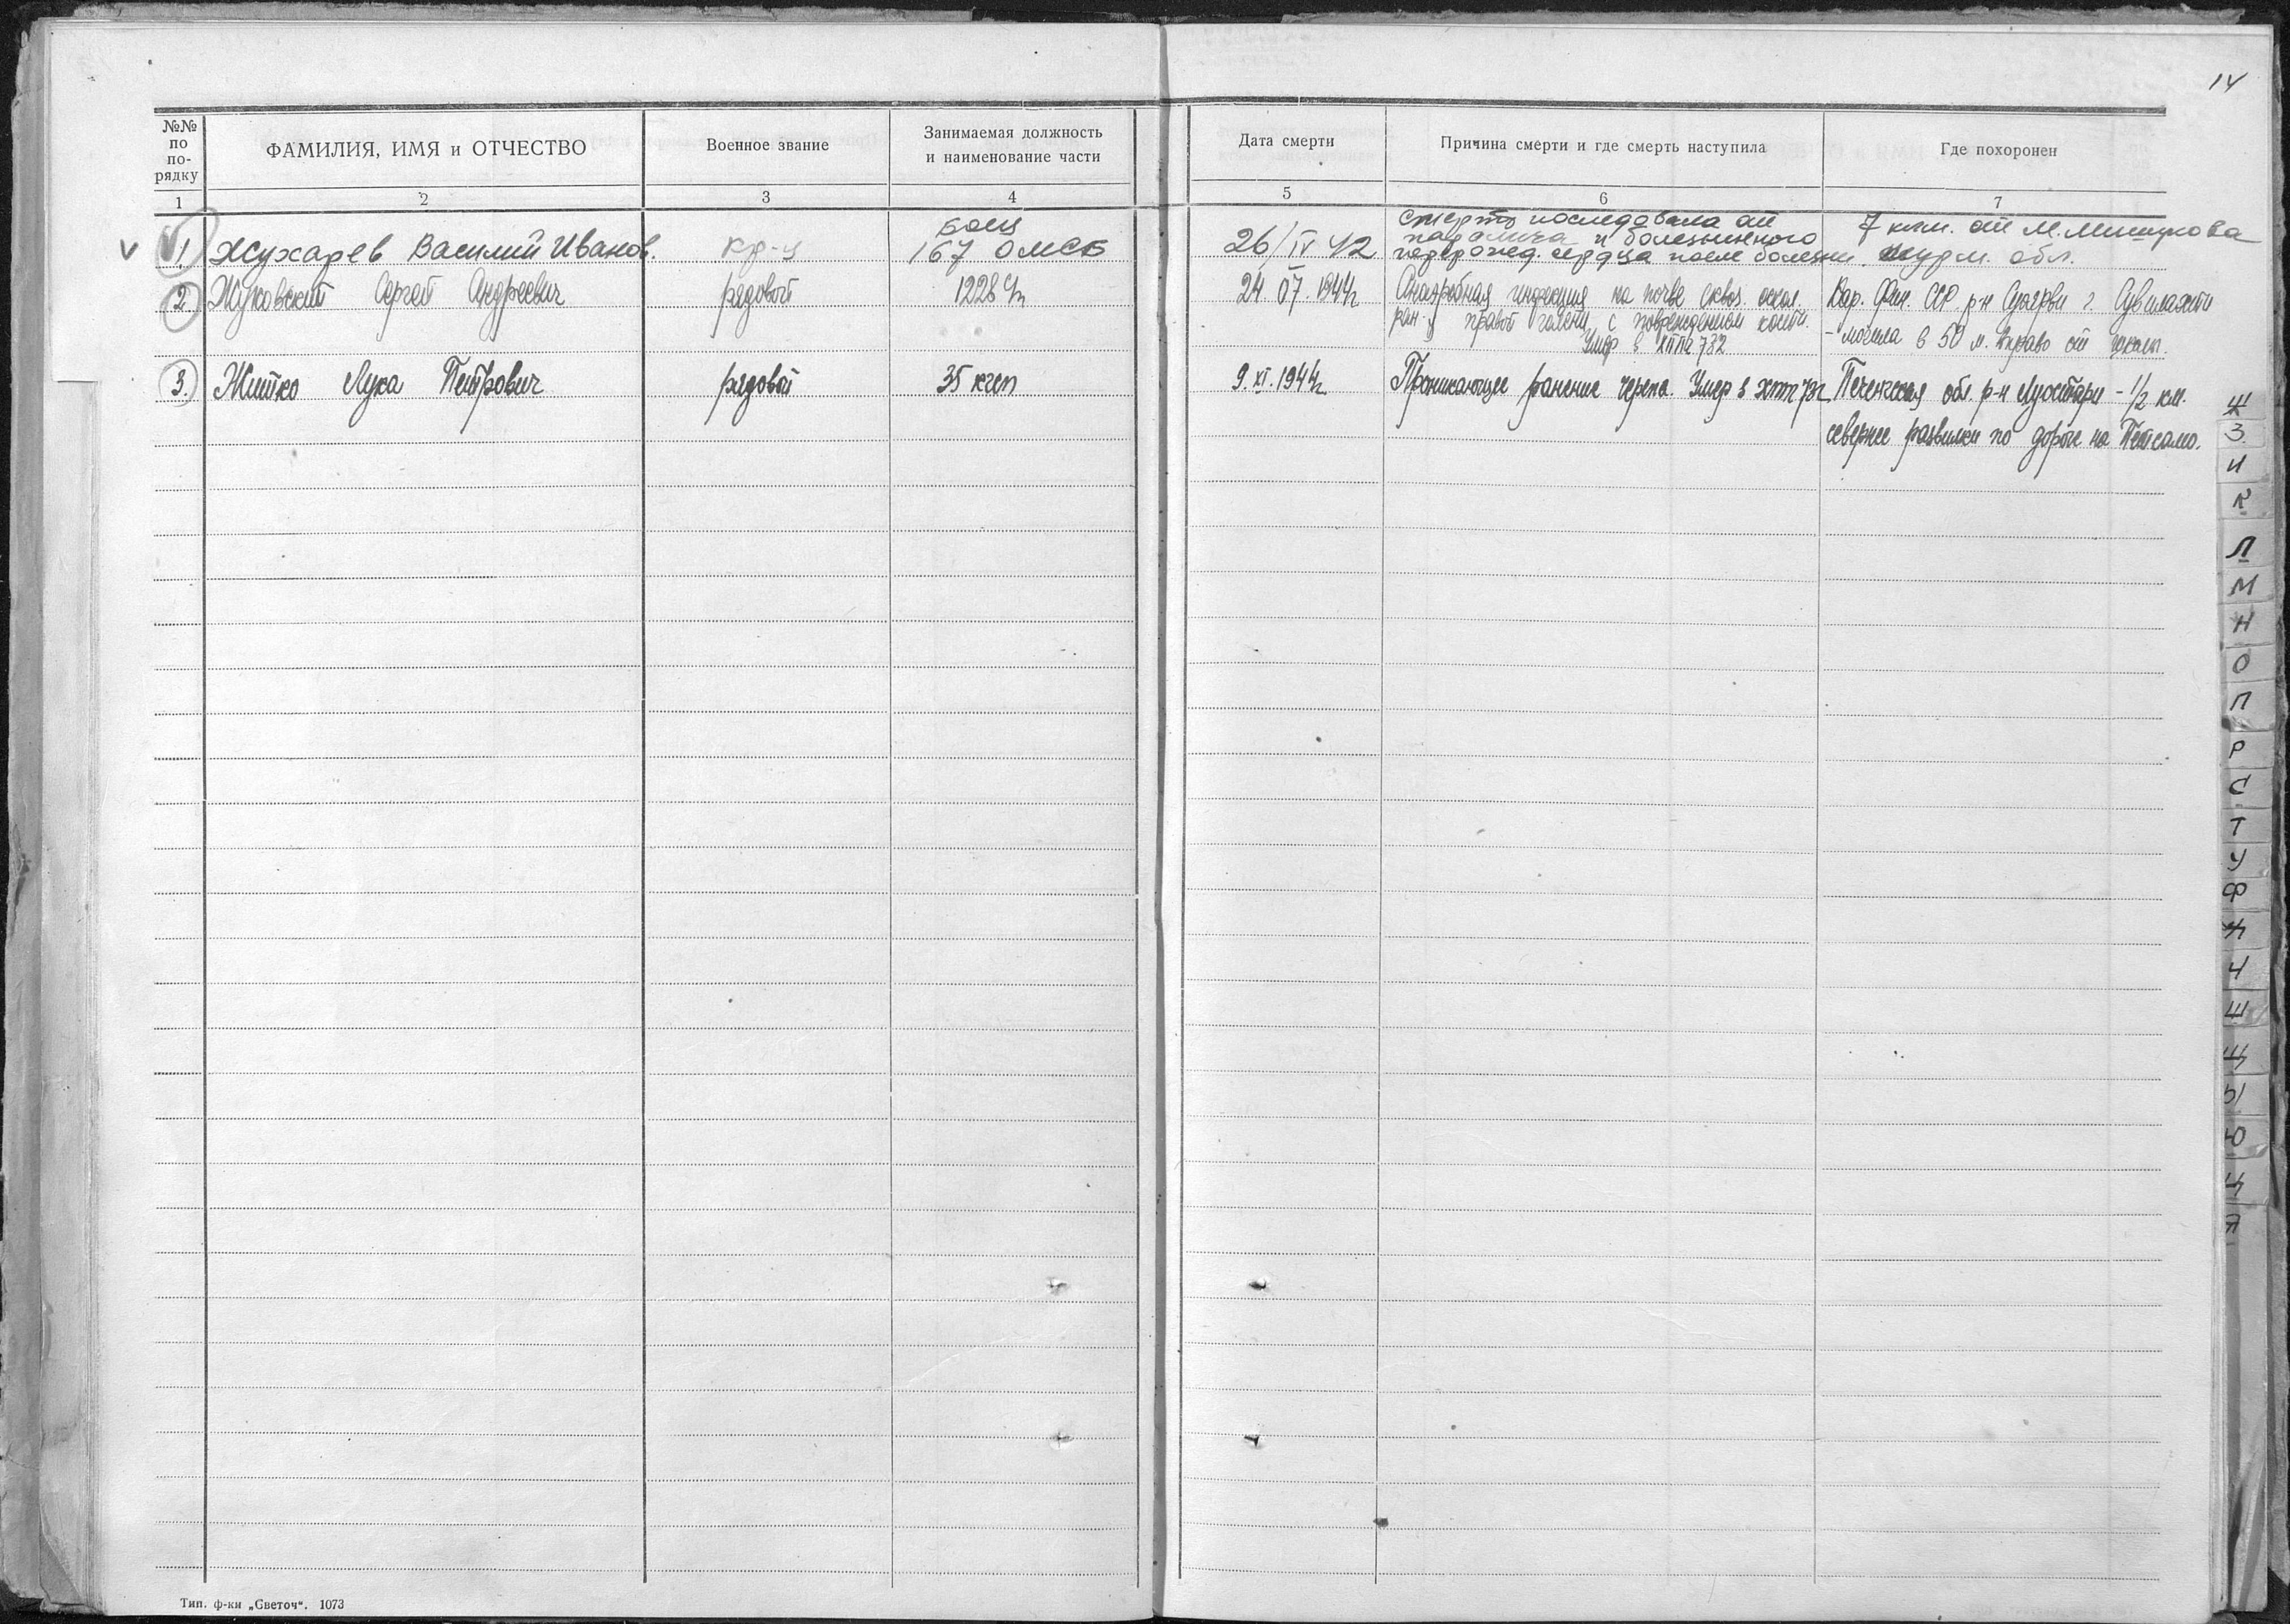 14
№№ по по-рядку
ФАМИЛИЯ, ИМЯ и ОТЧЕСТВО
Военное звание
Занимаемая должность
и наименование части
Дата смерти
Причина смерти и где смерть наступила
Где похоронен
1 2 3 4 5 6 7
V 1. Жухарев Василий Иванов.
кр-ц
боец
167 ОМСБ
26/IV 42
Смерть последовала от
паралича и болезненного
перерожд. сердца после болезни.
7 клм. от М. Мишукова
Мурм. обл.
2. Жуковский Сергей Андреевич
рядовой
1228
24.07.1944г
Анаэробная инфекция на почве сквоз. оскол.
ран-я правой голени с повреждением кости.
Умер в ХППГ 732
Кар. Фин. ССР. р-н Суоярви г. Сувилахти
- могила в 50 м. вправо от школы.
3. Житко Лука Петрович
рядовой
35
9.XI.1944г
Проникающее ранение черепа. Умер в ХППГ 732
Печенгская обл. р-н Луостари - 1/2 км.
севернее развилки по дороге на Петсамо.
Ж
З
И
К
Л
М
Н
О
П
Р
С
Т
У
Ф
Ч
Ш
Щ
Ы
Ю
Я
Тип. ф-ки „Светоч“. 1073